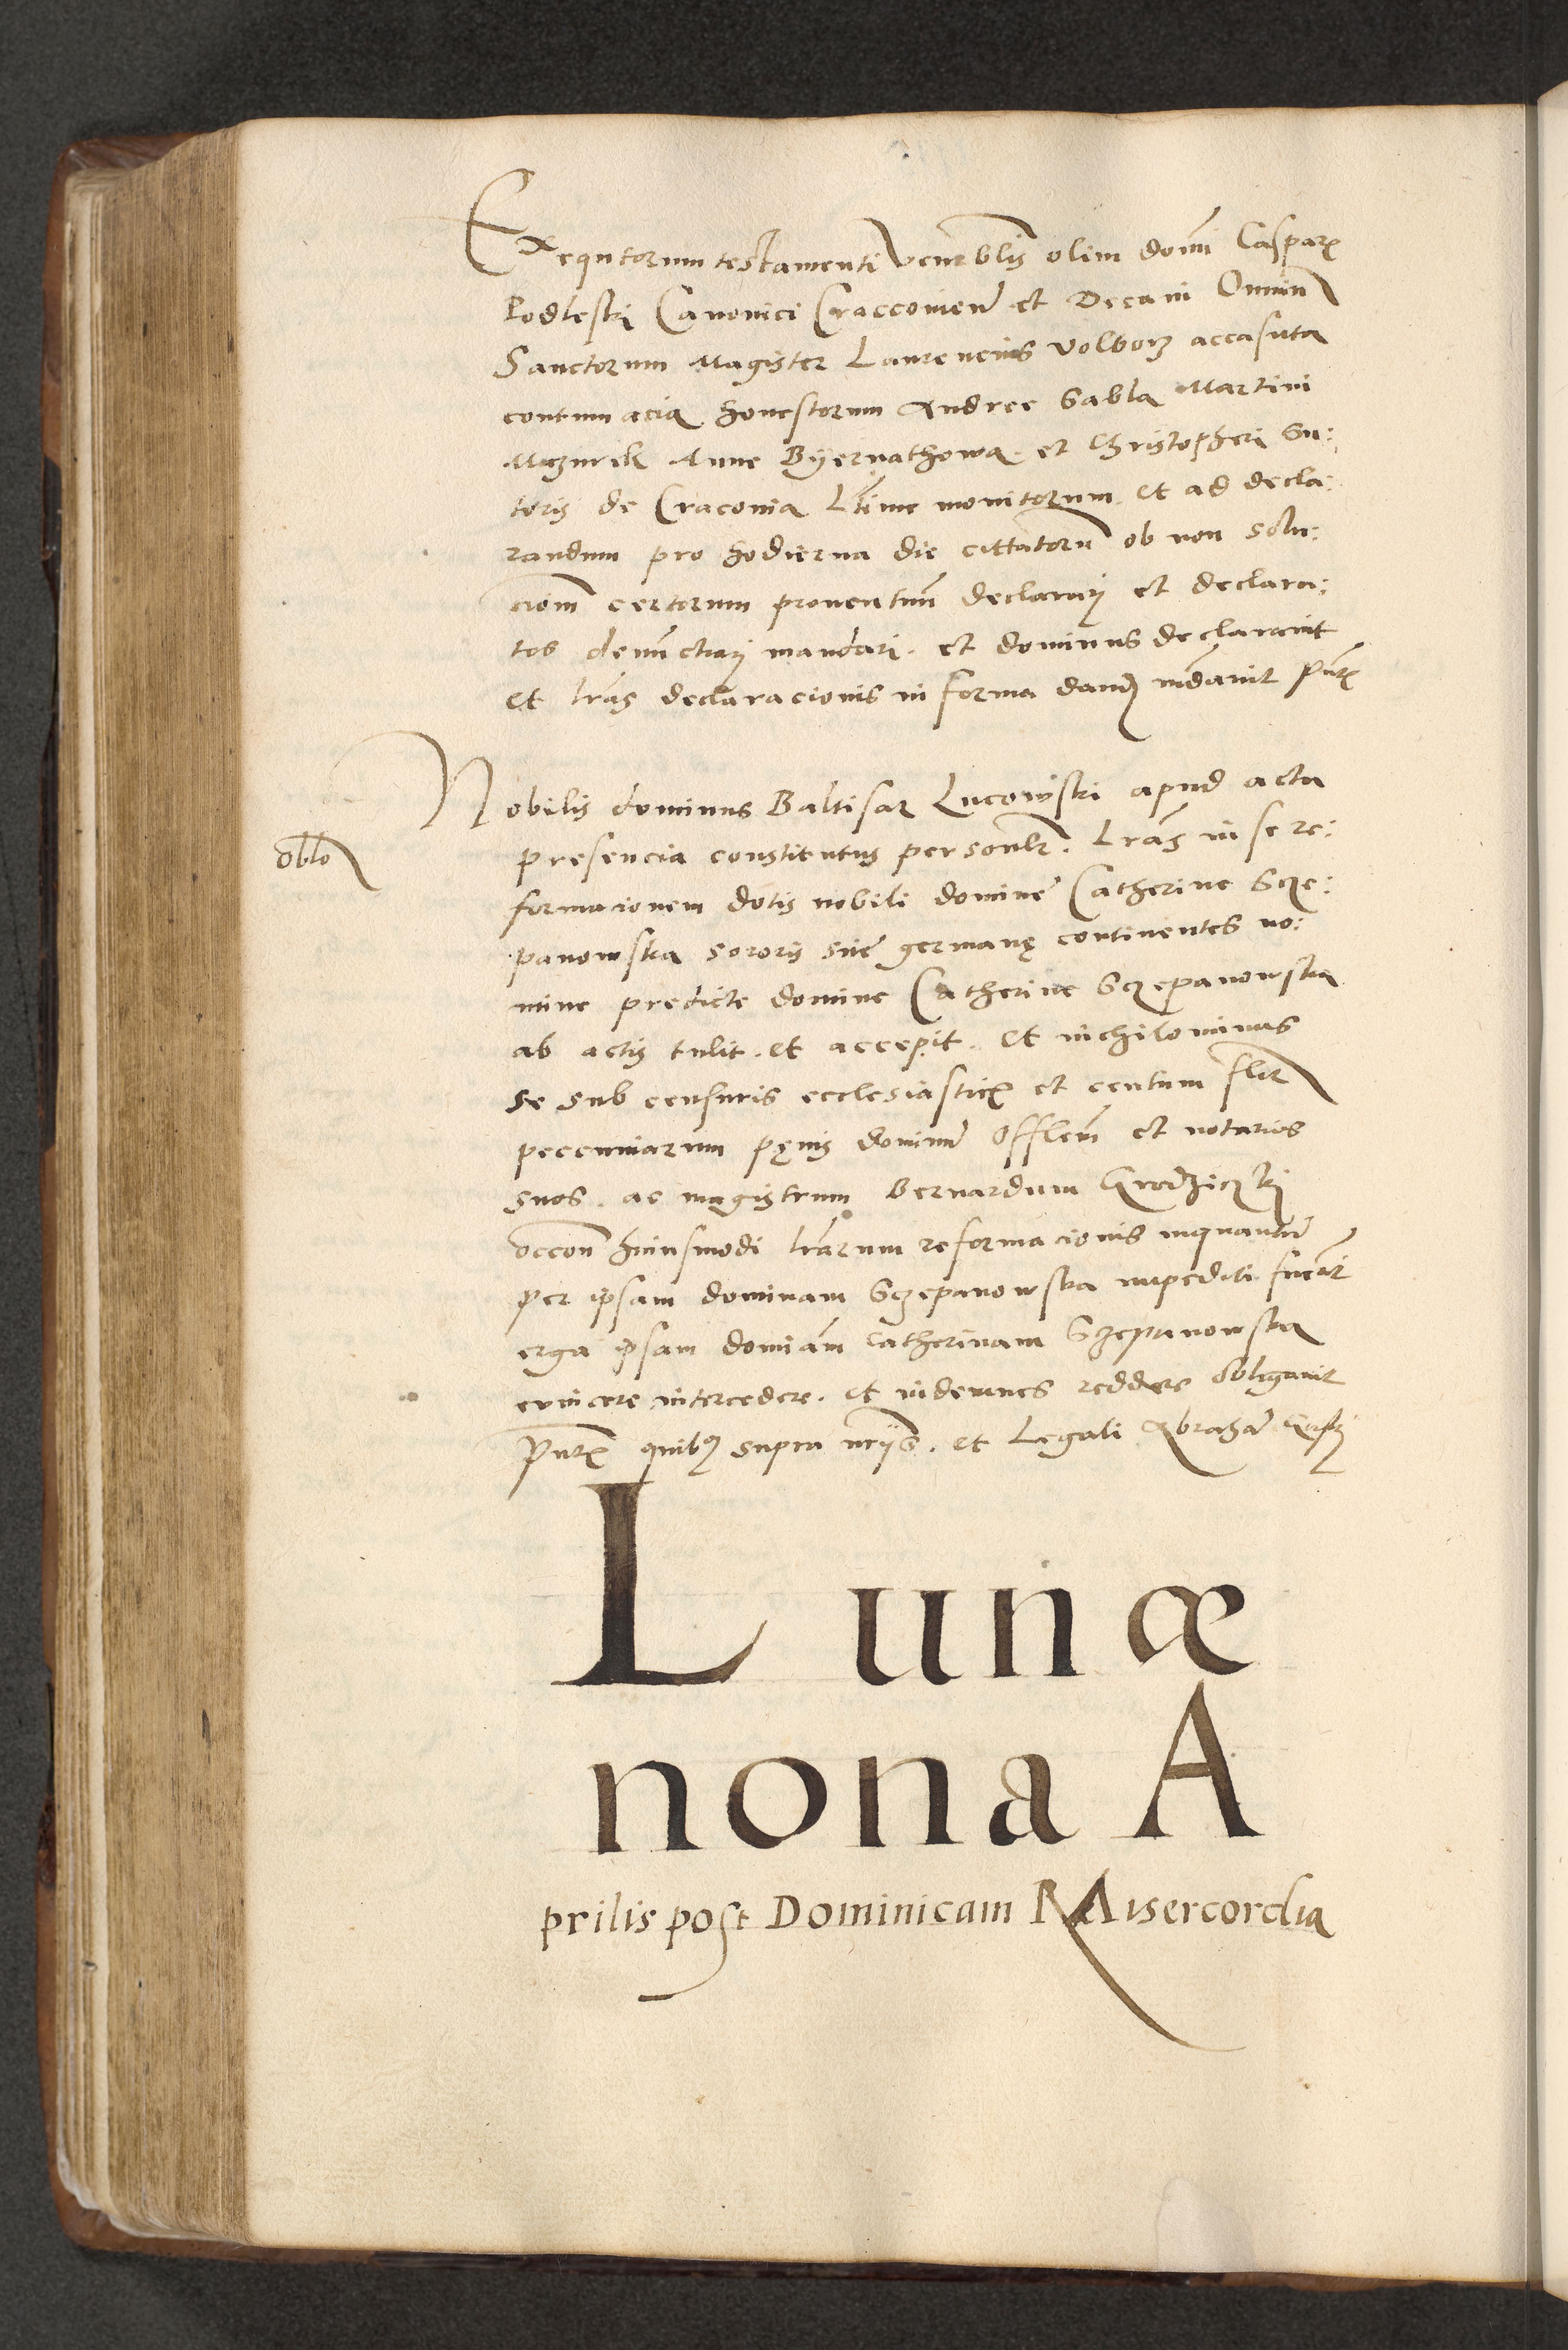 Exequtorum testamenti venerblis olim domi Caspari
Podleski Canonici Craccovien et Decani Omnium
Sanctorum Magister Laurencius Volborz accasuta
contumacia honestorum Andree Gabla Martini
Mazurek Anne Byernathowa. et Christopheri Su:
toris de Craconia Ltime monitorum. et ad decla:
randum pro hodierna die cittatorum ob non solu:
ciom certorum proventuum declarari et declara:
tos denunctiari mandari. et dominus declaravit
et lras declaracionis in forma dand mdavit Pntz
Nobilis dominus Baltisar Lucowski apud acta
oblo
presencia constitutus personlr. Lras in se re:
formacionem dotis nobili domine Catherine Scze:
panowska sororis sue germanę continentes no:
mine predicte domine Catherine Sczepanowska
ab actis tulit. et accepit. et nichilominus
se sub censuris ecclesiasticis et centum flor
peccuniarum pęnis dominum Offlem et notarios
suos. ac magistrum Bernardum Grodziczki
occon huiusmodi lrarum reformacionis inquantum
per ipsam dominam Sczepanowska impediti fuerit
erga ipsam domiam Catherinam Sczepanowska
evincere intercedere. et indemnes reddere obligavit
Pntz quibus supra nriis. et Legali Abraham
Lunæ
nona A
prilis post Dominicam Misercordia